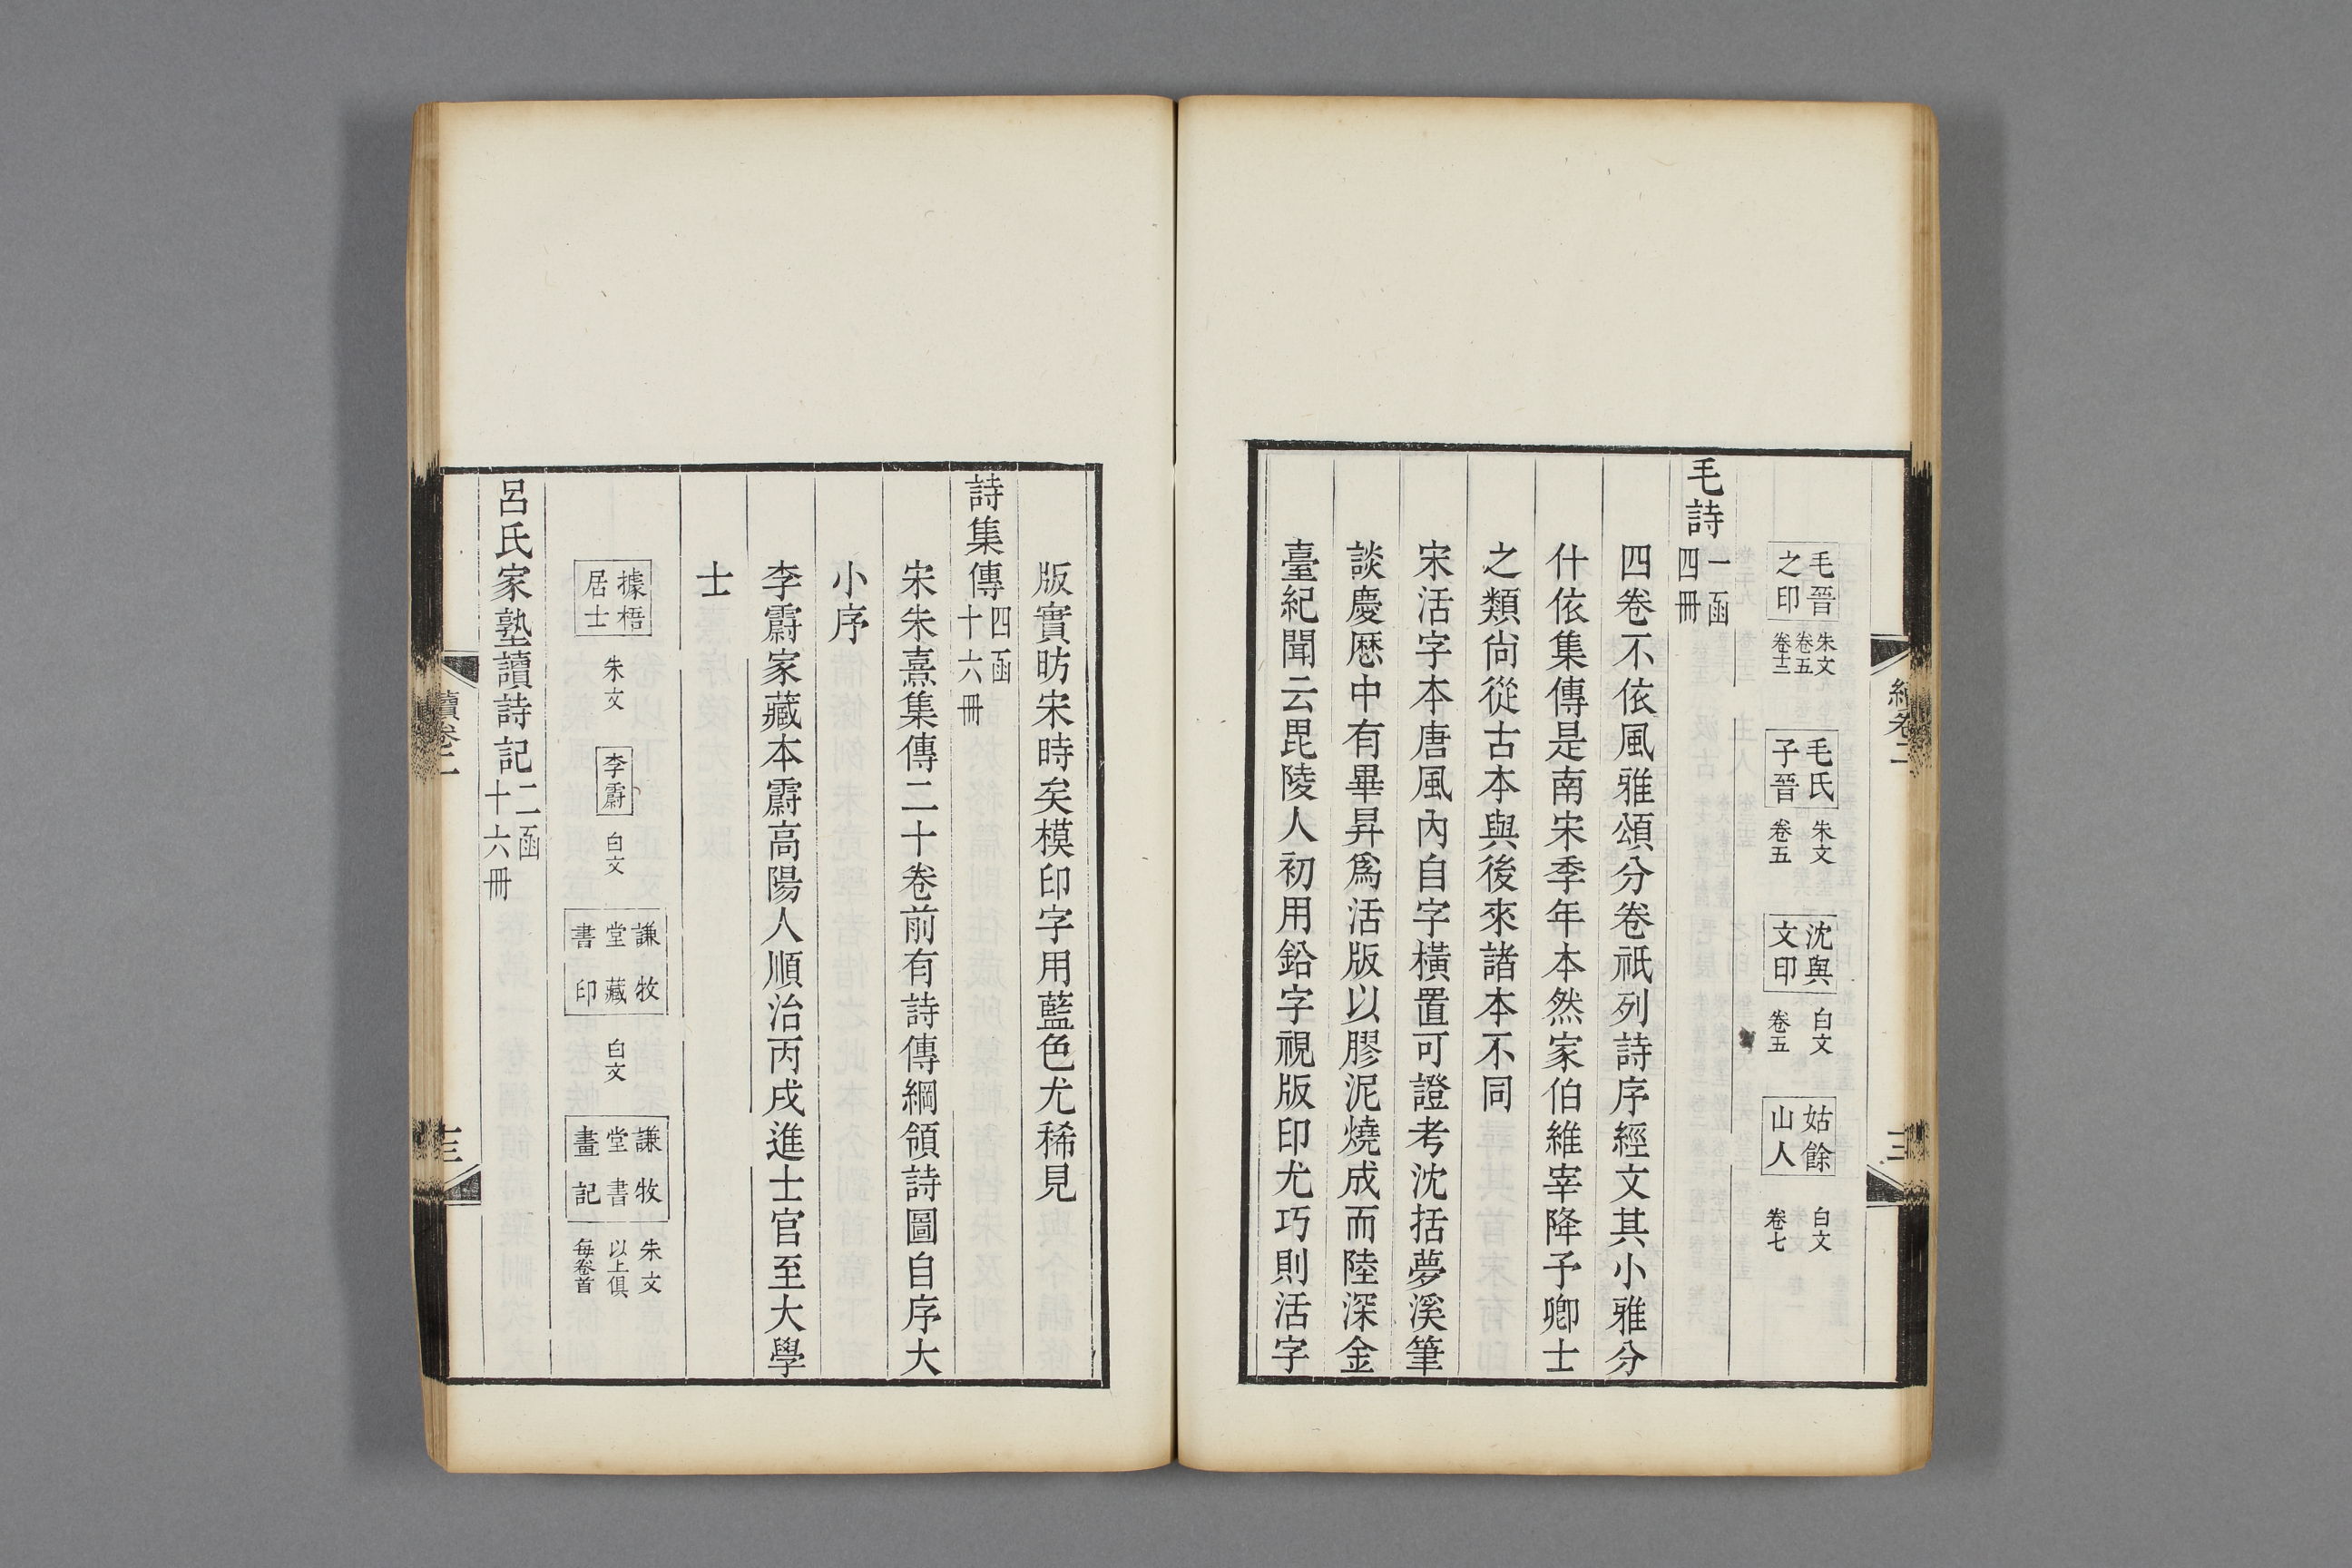 毛晉之印 朱文卷五卷十二 毛氏子晉 朱文卷五 沈與文印 白文卷五 姑餘山人 白文卷七
毛詩 一函四冊
四卷不依風雅頌分卷祇列詩序經文其小雅分
什依集傳是南宋季年本然家伯維宰降予卿士
之類尙從古本與後來諸本不同
宋活字本唐風內自字橫置可證考沈括夢溪筆
談慶厯中有畢昇爲活版以膠泥燒成而陸深金
臺紀聞云毘陵人初用鉛字視版印尤巧則活字
版實昉宋時矣模印字用藍色尤稀見
詩集傳 四函十六冊
宋朱熹集傳二十卷前有詩傳綱領詩圖自序大
小序
李霨家藏本霨高陽人順治丙戌進士官至大學
士
據梧居士 朱文 李霨 白文 謙牧堂藏書印 白文 謙牧堂書畫記 朱文以上俱每卷首
呂氏家塾讀詩記 二函十六冊